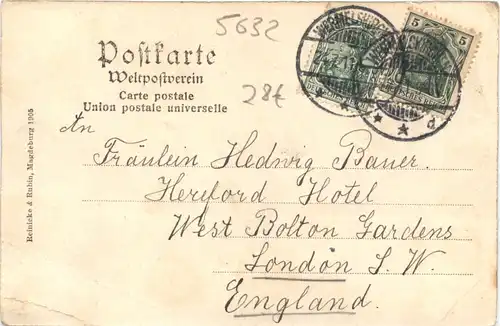 5632
Postkarte
Weltpostverein
Carte postale
Union postale universelle
28€
5
Reinicke & Rubin, Magdeburg 1905
An
Fräulein Hedwig Bauer.
Hereford Hotel
West Bolton Gardens
London S. W.
England.